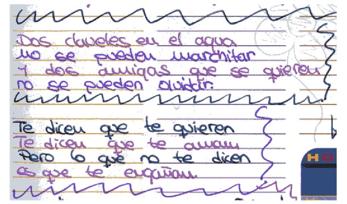 Dos claveles en el agua
no se pueden marchitar
Y dos amigas que se quieren
no se pueden olvidar.
Te dicen que te quieren
Te dicen que te aman
Pero lo que no te dicen
es que te engañan.